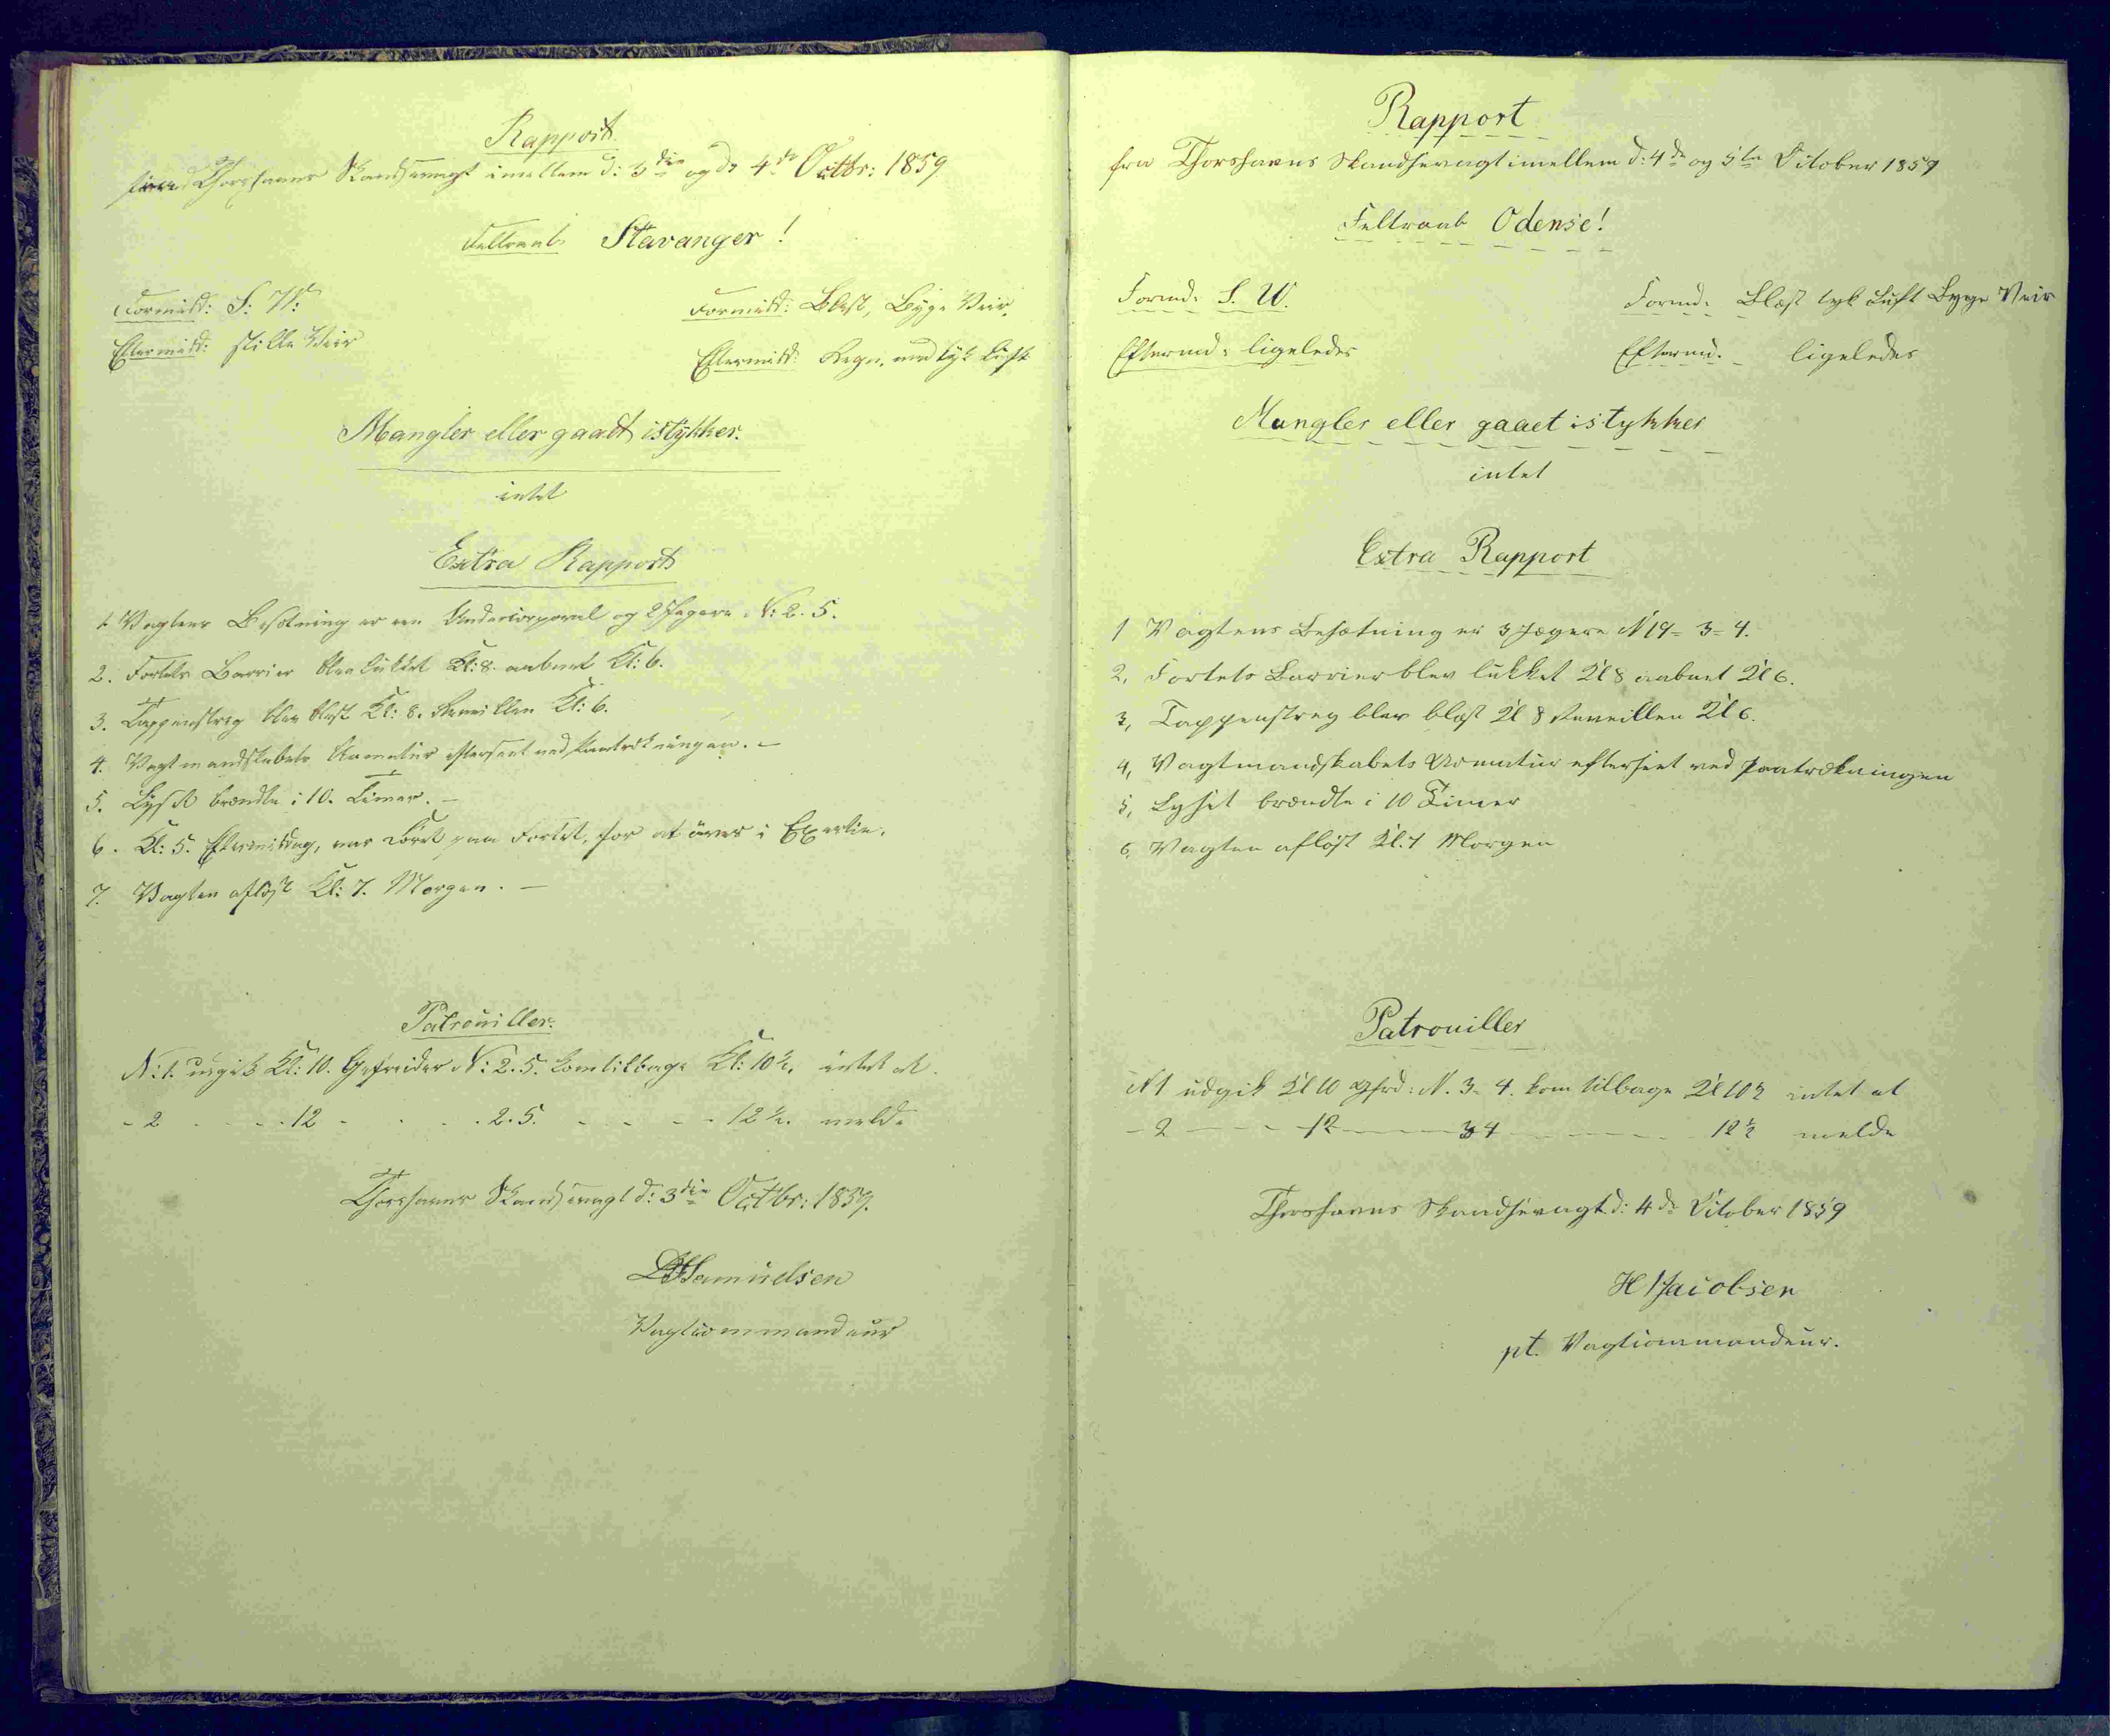 Rapport
fra Thorshavns Skandsevagt imellem d: 3die og d: 4de Octbr: 1859
Feltraab Stavanger!
Formidd: S: W: Formidd: Blæst, Byge Veir.
Eftermidd: stille Veir Eftermidd: Regn, med tyk Luft
Mangler eller gaaet istykker.
intet
Extra Rapport
1. Vagtens Besætning er een Undercorporal og 2 Jægere N: 2. 5.
2. Fortets Barrier blev lukket Kl: 8. aabnet Kl: 6.
3. Tappenstreg blev blæst Kl: 8. Reveillen Kl: 6.
4. Vagtmandskabets Armatur efterseet ved Paatrækningen. –
5. Lyset brændte i 10. Timer. –
6. Kl: 5. Eftermiddag, var Coret paa Fortet, for at øves i Exertie.
7. Vagten afløst Kl: 7. Morgen. –
Patrouiller.
N: 1. udgik Kl: 10. Gefreider N: 2. 5. kom tilbage Kl: 10½. intet at
- 2 - - - 12 - - - 2. 5. - - - - 12½. melde
Thorshavns Skandsevagt d: 3die Octbr: 1859.
Samuelsen
Vagtcommandeur
Rapport
fra Thorshavns Skandsevagt imellem d: 4de og 5te October 1859
Feltraab Odense!
Formd: S. W. Formd: Blæst tyk Luft Byge Veir
Eftermd: ligeledes Eftermd. ligeledes
Mangler eller gaaet istykker
intet
Extra Rapport
1 Vagtens Besætning er 3 Jægere N 19 = 3 = 4.
2, Fortets Barrier blev lukket Kl 8 aabnet Kl 6.
3, Tappenstreg blev blæst Kl 8 Reveillen Kl 6.
4, Vagtmandskabets Armatur efterseet ved Paatrækningen
5, Lyset brændte i 10 Timer
6, Vagten afløst Kl. 7 Morgen
Patrouiller
N 1 udgik Kl 10 Gfrd: N. 3 = 4. kom tilbage Kl 10½ intet at
- 2 - - - 12 - - - 3 4 - - - - 12½ melde
Thorshavns Skandsevagt d: 4de October 1859
H Jacobsen
pt. Vagtcommandeur.